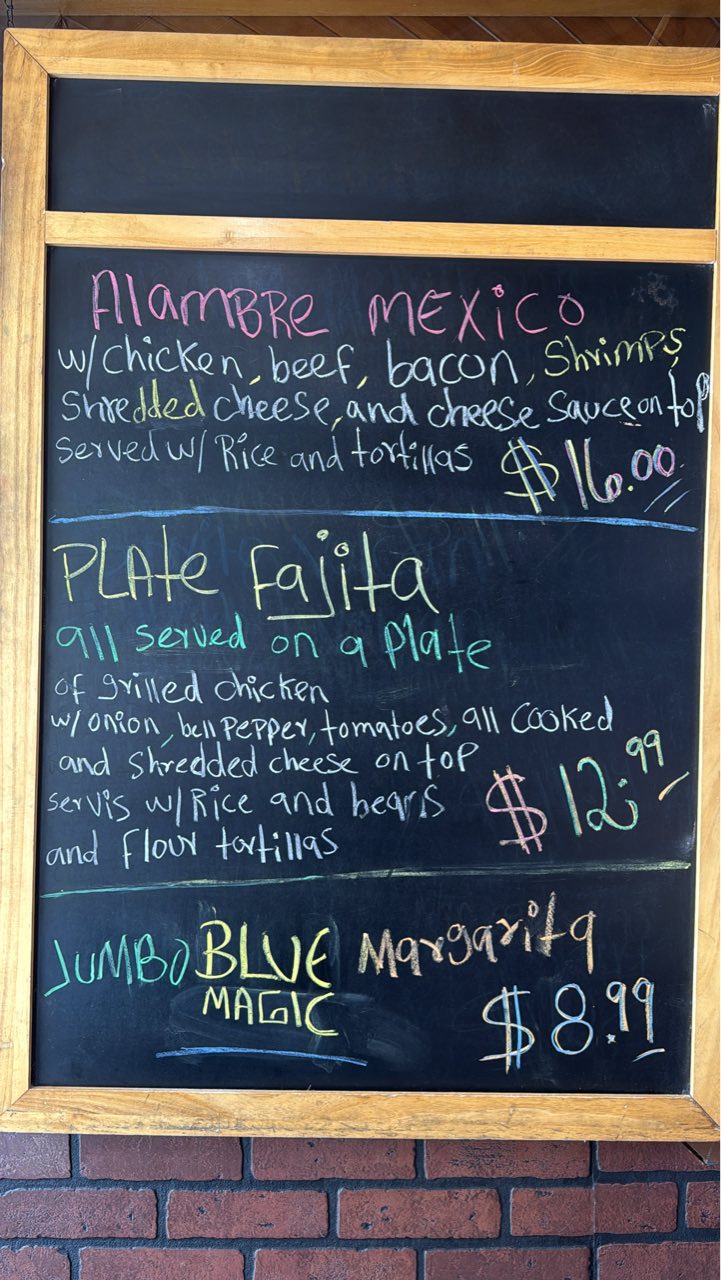 AlaMBRe MEXiCO
w/chicken, beef, bacon, ShriMPs,
Shredded cheese, and cheese sauce on top
served w/ Rice and tortillas $16.00
PLAte Fajita
all served on a plate
of grilled chicken
w/onion, bell PePPer, tomatoes, all cooked
and shredded cheese on top
servis w/Rice and beans $12.99
and flour tortillas
JUMBO BLUE Margarita
MAGIC $8.99